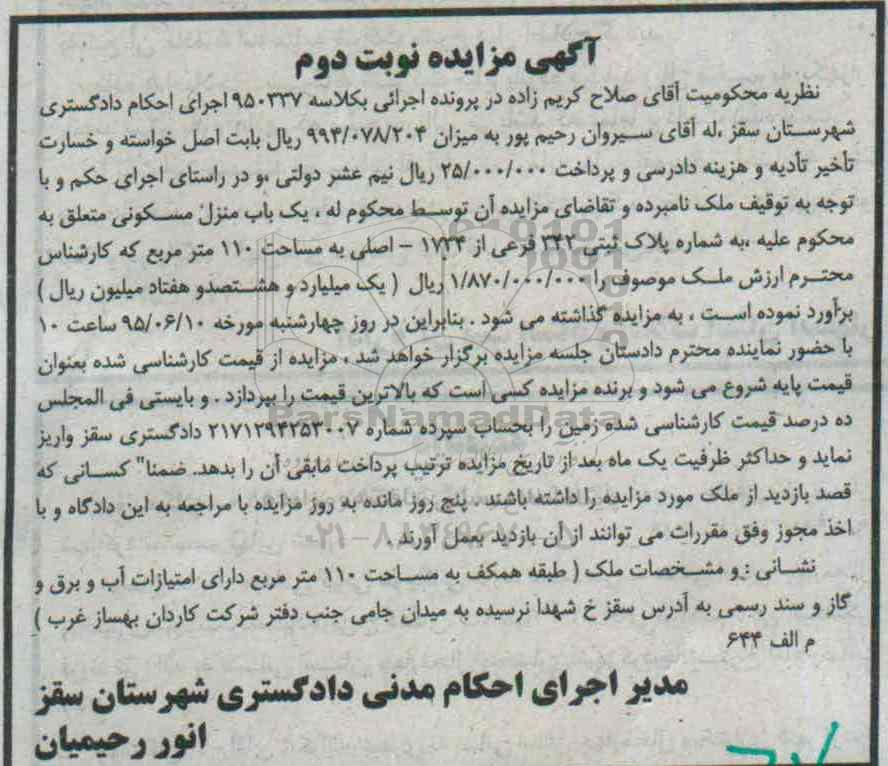 آگهی مزایده نوبت دوم
نظریه محکومیت آقای صلاح کریم زاده در پرونده اجرائی بکلاسه ۹۵۰۳۳۷ اجرای احکام دادگستری
شهرستان سقز ،له آقای سیروان رحیم پور به میزان ۹۹۳/۰۷۸/۲۰۴ ریال بابت اصل خواسته و خسارت
تأخیر تأدیه و هزینه دادرسی و پرداخت ۲۵/۰۰۰/۰۰۰ ریال نیم عشر دولتی ،و در راستای اجرای حکم و با
توجه به توقیف ملک نامبرده و تقاضای مزایده آن توسط محکوم له ، یک باب منزل مسکونی متعلق به
محکوم علیه ،به شماره پلاک ثبتی ۳۴۲ فرعی از ۱۷۳۴ – اصلی به مساحت ۱۱۰ متر مربع که کارشناس
محترم ارزش ملک موصوف را ۱/۸۷۰/۰۰۰/۰۰۰ ریال ( یک میلیارد و هشتصدو هفتاد میلیون ریال )
برآورد نموده است ، به مزایده گذاشته می شود . بنابراین در روز چهارشنبه مورخه ۹۵/۰۶/۱۰ ساعت ۱۰
با حضور نماینده محترم دادستان جلسه مزایده برگزار خواهد شد ، مزایده از قیمت کارشناسی شده بعنوان
قیمت پایه شروع می شود و برنده مزایده کسی است که بالاترین قیمت را بپردازد . و بایستی فی المجلس
ده درصد قیمت کارشناسی شده زمین را بحساب سپرده شماره ۲۱۷۱۲۹۴۲۵۳۰۰۷ دادگستری سقز واریز
نماید و حداکثر ظرفیت یک ماه بعد از تاریخ مزایده ترتیب پرداخت مابقی آن را بدهد. ضمنا" کسانی که
قصد بازدید از ملک مورد مزایده را داشته باشند . پنج روز مانده به روز مزایده با مراجعه به این دادگاه و با
اخذ مجوز وفق مقررات می توانند از آن بازدید بعمل آورند .
نشانی : و مشخصات ملک ( طبقه همکف به مساحت ۱۱۰ متر مربع دارای امتیازات آب و برق و
گاز و سند رسمی به آدرس سقز خ شهدا نرسیده به میدان جامی جنب دفتر شرکت کاردان بهساز غرب )
م الف ۶۴۴
مدیر اجرای احکام مدنی دادگستری شهرستان سقز
انور رحیمیان
ParsNamadData